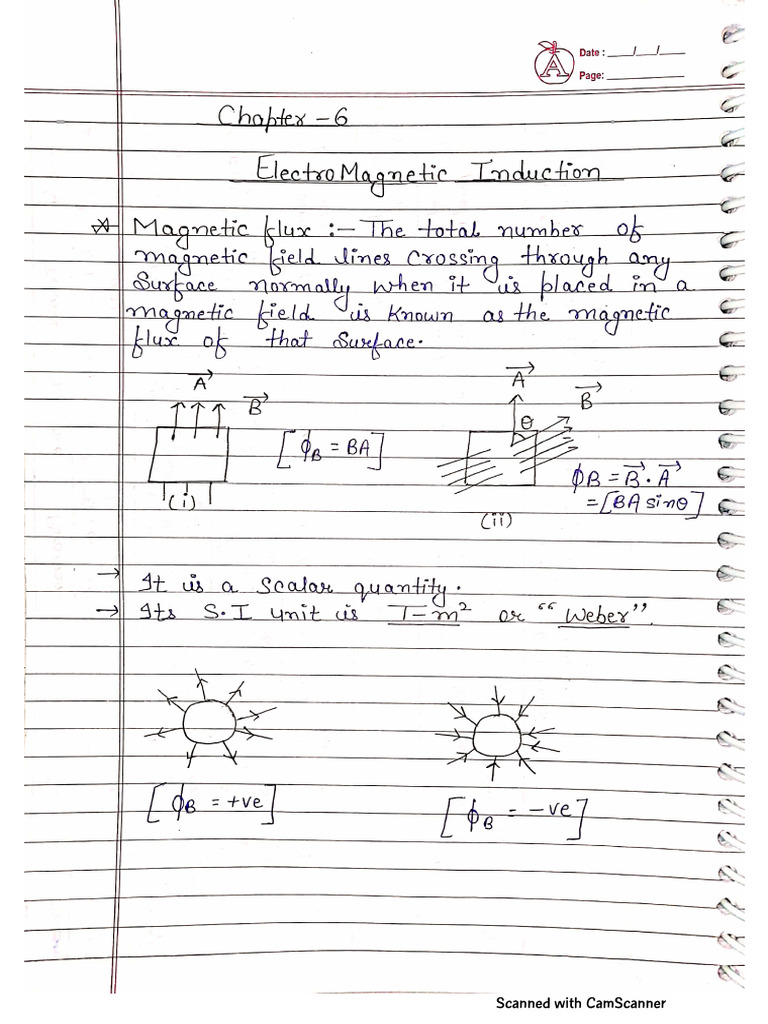 Date : ___/___/___
Page: ___________
Chapter - 6
ElectroMagnetic Induction
Magnetic flux :- The total number of
magnetic field lines crossing through any
Surface normally when it is placed in a
magnetic field is known as the magnetic
flux of that surface.
A⃗ B⃗
[ϕB = BA]
(i)
A⃗ B⃗
θ
ϕB = B⃗ . A⃗
= [BA sinθ]
(ii)
→ It is a scalar quantity.
→ Its S.I unit is T-m² or "Weber".
[ϕB = +ve] [ϕB = -ve]
Scanned with CamScanner